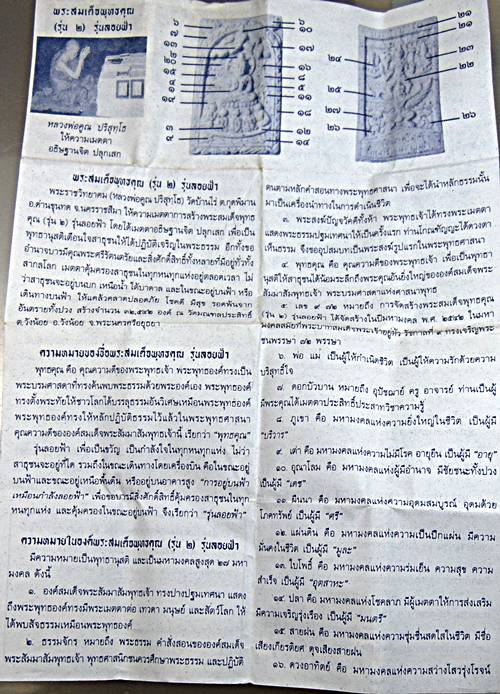 พระสมเด็จพุทธคุณ
(รุ่น ๒) รุ่นลอยฟ้า
หลวงพ่อคูณ ปริสุทฺโธ
ให้ความเมตตา
อธิษฐานจิต ปลุกเสก
๖
๗
๑๓
๒
๒๐
๑๕
๑๔
๑
๑๙
๓
๙
๖
๑๐
๑๗
๑๖
๘
๕
๑๑
๑๘
๑๒
๑๔
๒๔
๒๕
๒๗
๒๖
๒๑
๒๑
๒๓
๒๒
๒๖
พระสมเด็จพุทธคุณ (รุ่น ๒) รุ่นลอยฟ้า
พระราชวิทยาคม (หลวงพ่อคูณ ปริสุทฺโธ) วัดบ้านไร่ ต.กุดพิมาน
อ.ด่านขุนทด จ.นครราชสีมา ให้ความเมตตาการสร้างพระสมเด็จพุทธ
คุณ (รุ่น ๒) รุ่นลอยฟ้า โดยได้เมตตาอธิษฐานจิต ปลุกเสก เพื่อเป็น
พุทธานุสติเตือนใจสาธุชนให้ได้ปฏิบัติเจริญในพระธรรม อีกทั้งขอ
อำนาจบารมีคุณพระศรีรัตนตรัยและสิ่งศักดิ์สิทธิ์ทั้งหลายที่มีอยู่ทั่วทั้ง
สากลโลก เมตตาคุ้มครองสาธุชนในทุกหนทุกแห่งอยู่ตลอดเวลา ไม่
ว่าสาธุชนจะอยู่บนบก เหนือน้ำ ใต้บาดาล และในขณะอยู่บนฟ้า หรือ
เดินทางบนฟ้า ให้แคล้วคลาดปลอดภัย โชคดี มีสุข รอดพ้นจาก
อันตรายทั้งปวง สร้างจำนวน ๓๒,๕๔๒ องค์ ณ วัดมณฑลประสิทธิ์
ต.วังน้อย อ.วังน้อย จ.พระนครศรีอยุธยา
ความหมายของชื่อพระสมเด็จพุทธคุณ รุ่นลอยฟ้า
พุทธคุณ คือ คุณความดีของพระพุทธเจ้า พระพุทธองค์ทรงเป็น
พระบรมศาสดาที่ทรงค้นพบธรรมด้วยพระองค์เอง พระพุทธองค์
ทรงตั้งพระทัยให้ชาวโลกได้บรรลุธรรมอันวิเศษเหมือนพระพุทธองค์
พระพุทธองค์ทรงให้หลักปฏิบัติธรรมไว้แล้วในพระพุทธศาสนา
คุณความดีขององค์สมเด็จพระสัมมาสัมพุทธเจ้านี้ เรียกว่า "พุทธคุณ"
รุ่นลอยฟ้า เพื่อเป็นขวัญ เป็นกำลังใจในทุกหนทุกแห่ง ไม่ว่า
สาธุชนจะอยู่ที่ใด รวมถึงในขณะเดินทางโดยเครื่องบิน คือในขณะอยู่
บนฟ้าและขณะอยู่เหนือพื้นดิน หรืออยู่บนอาคารสูง "การอยู่บนฟ้า
เหมือนกำลังลอยฟ้า" เพื่อขอบารมีสิ่งศักดิ์สิทธิ์คุ้มครองสาธุชนในทุก
หนทุกแห่ง และคุ้มครองในขณะอยู่บนฟ้า จึงเรียกว่า "รุ่นลอยฟ้า"
ความหมายในองค์พระสมเด็จพุทธคุณ (รุ่น ๒) รุ่นลอยฟ้า
มีความหมายเป็นพุทธานุสติ และเป็นมหามงคลสูงสุด ๒๗ มหา
มงคล ดังนี้
๑. องค์สมเด็จพระสัมมาสัมพุทธเจ้า ทรงปางปฐมเทศนา แสดง
ถึงพระพุทธองค์ทรงมีพระเมตตาต่อ เทวดา มนุษย์ และสัตว์โลก ให้
ได้พบสัจธรรมเหมือนพระพุทธองค์
๒. ธรรมจักร หมายถึง พระธรรม คำสั่งสอนขององค์สมเด็จ
พระสัมมาสัมพุทธเจ้า พุทธศาสนิกชนควรศึกษาพระธรรม และปฏิบัติ
ตนตามหลักคำสอนทางพระพุทธศาสนา เพื่อจะได้นำหลักธรรมนั้น
มาเป็นเครื่องนำทางในการดำเนินชีวิต
๓. พระสงฆ์ปัญจวัคคีทั้งห้า พระพุทธเจ้าได้ทรงพระเมตตา
แสดงพระธรรมปฐมเทศนาให้เป็นครั้งแรก ท่านโกณฑัญญะได้ดวงตา
เห็นธรรม จึงขออุปสมบทเป็นพระสงฆ์รูปแรกในพระพุทธศาสนา
๔. พุทธคุณ คือ คุณความดีของพระพุทธเจ้า เพื่อเป็นพุทธา
นุสติให้สาธุชนได้น้อมระลึกถึงพระคุณอันยิ่งใหญ่ขององค์สมเด็จพระ
สัมมาสัมพุทธเจ้า พระบรมศาสดาแห่งศาสนาพุทธ
๕. เลข ๙ ๗๒ หมายถึง การจัดสร้างพระสมเด็จพุทธคุณ
(รุ่น ๒) รุ่นลอยฟ้า ได้จัดสร้างในปีมหามงคล พ.ศ. ๒๕๔๒ ในมหา
มงคลสมัยที่พระบาทสมเด็จพระเจ้าอยู่หัว รัชกาลที่ ๙ ทรงเจริญพระ
ชนมพรรษา ๗๒ พรรษา
๖. พ่อ แม่ เป็นผู้ให้กำเนิดชีวิต เป็นผู้ให้ความรักด้วยความ
บริสุทธิ์ใจ
๗. ดอกบัวบาน หมายถึง อุปัชฌาย์ ครู อาจารย์ ท่านเป็นผู้
มีพระคุณได้เมตตาประสิทธิ์ประสาทวิชาความรู้
๘. ภูเขา คือ มหามงคลแห่งความยิ่งใหญ่ในชีวิต เป็นผู้มี
"บริวาร"
๙. เต่า คือ มหามงคลแห่งความไม่มีโรค อายุยืน เป็นผู้มี "อายุ"
๑๐. อุณาโลม คือ มหามงคลแห่งผู้มีอำนาจ มีชัยชนะทั้งปวง
เป็นผู้มี "เดช"
๑๑. มีนนา คือ มหามงคลแห่งความอุดมสมบูรณ์ อุดมด้วย
โภคทรัพย์ เป็นผู้มี "ศรี"
๑๒. แผ่นดิน คือ มหามงคลแห่งความเป็นปึกแผ่น มีความ
มั่นคงในชีวิต เป็นผู้มี "มูละ"
๑๓. ใบโพธิ์ คือ มหามงคลแห่งความร่มเย็น ความสุข ความ
สำเร็จ เป็นผู้มี "อุตสาหะ"
๑๔. ปลา คือ มหามงคลแห่งโชคลาภ มีผู้เมตตาให้การส่งเสริม
มีความเจริญรุ่งเรือง เป็นผู้มี "มนตรี"
๑๕. สายฝน คือ มหามงคลแห่งความชุ่มชื่นสดใสในชีวิต มีชื่อ
เสียงเกียรติยศ ดุจเสียงสายฝน
๑๖. ดวงอาทิตย์ คือ มหามงคลแห่งความสว่างไสวรุ่งโรจน์